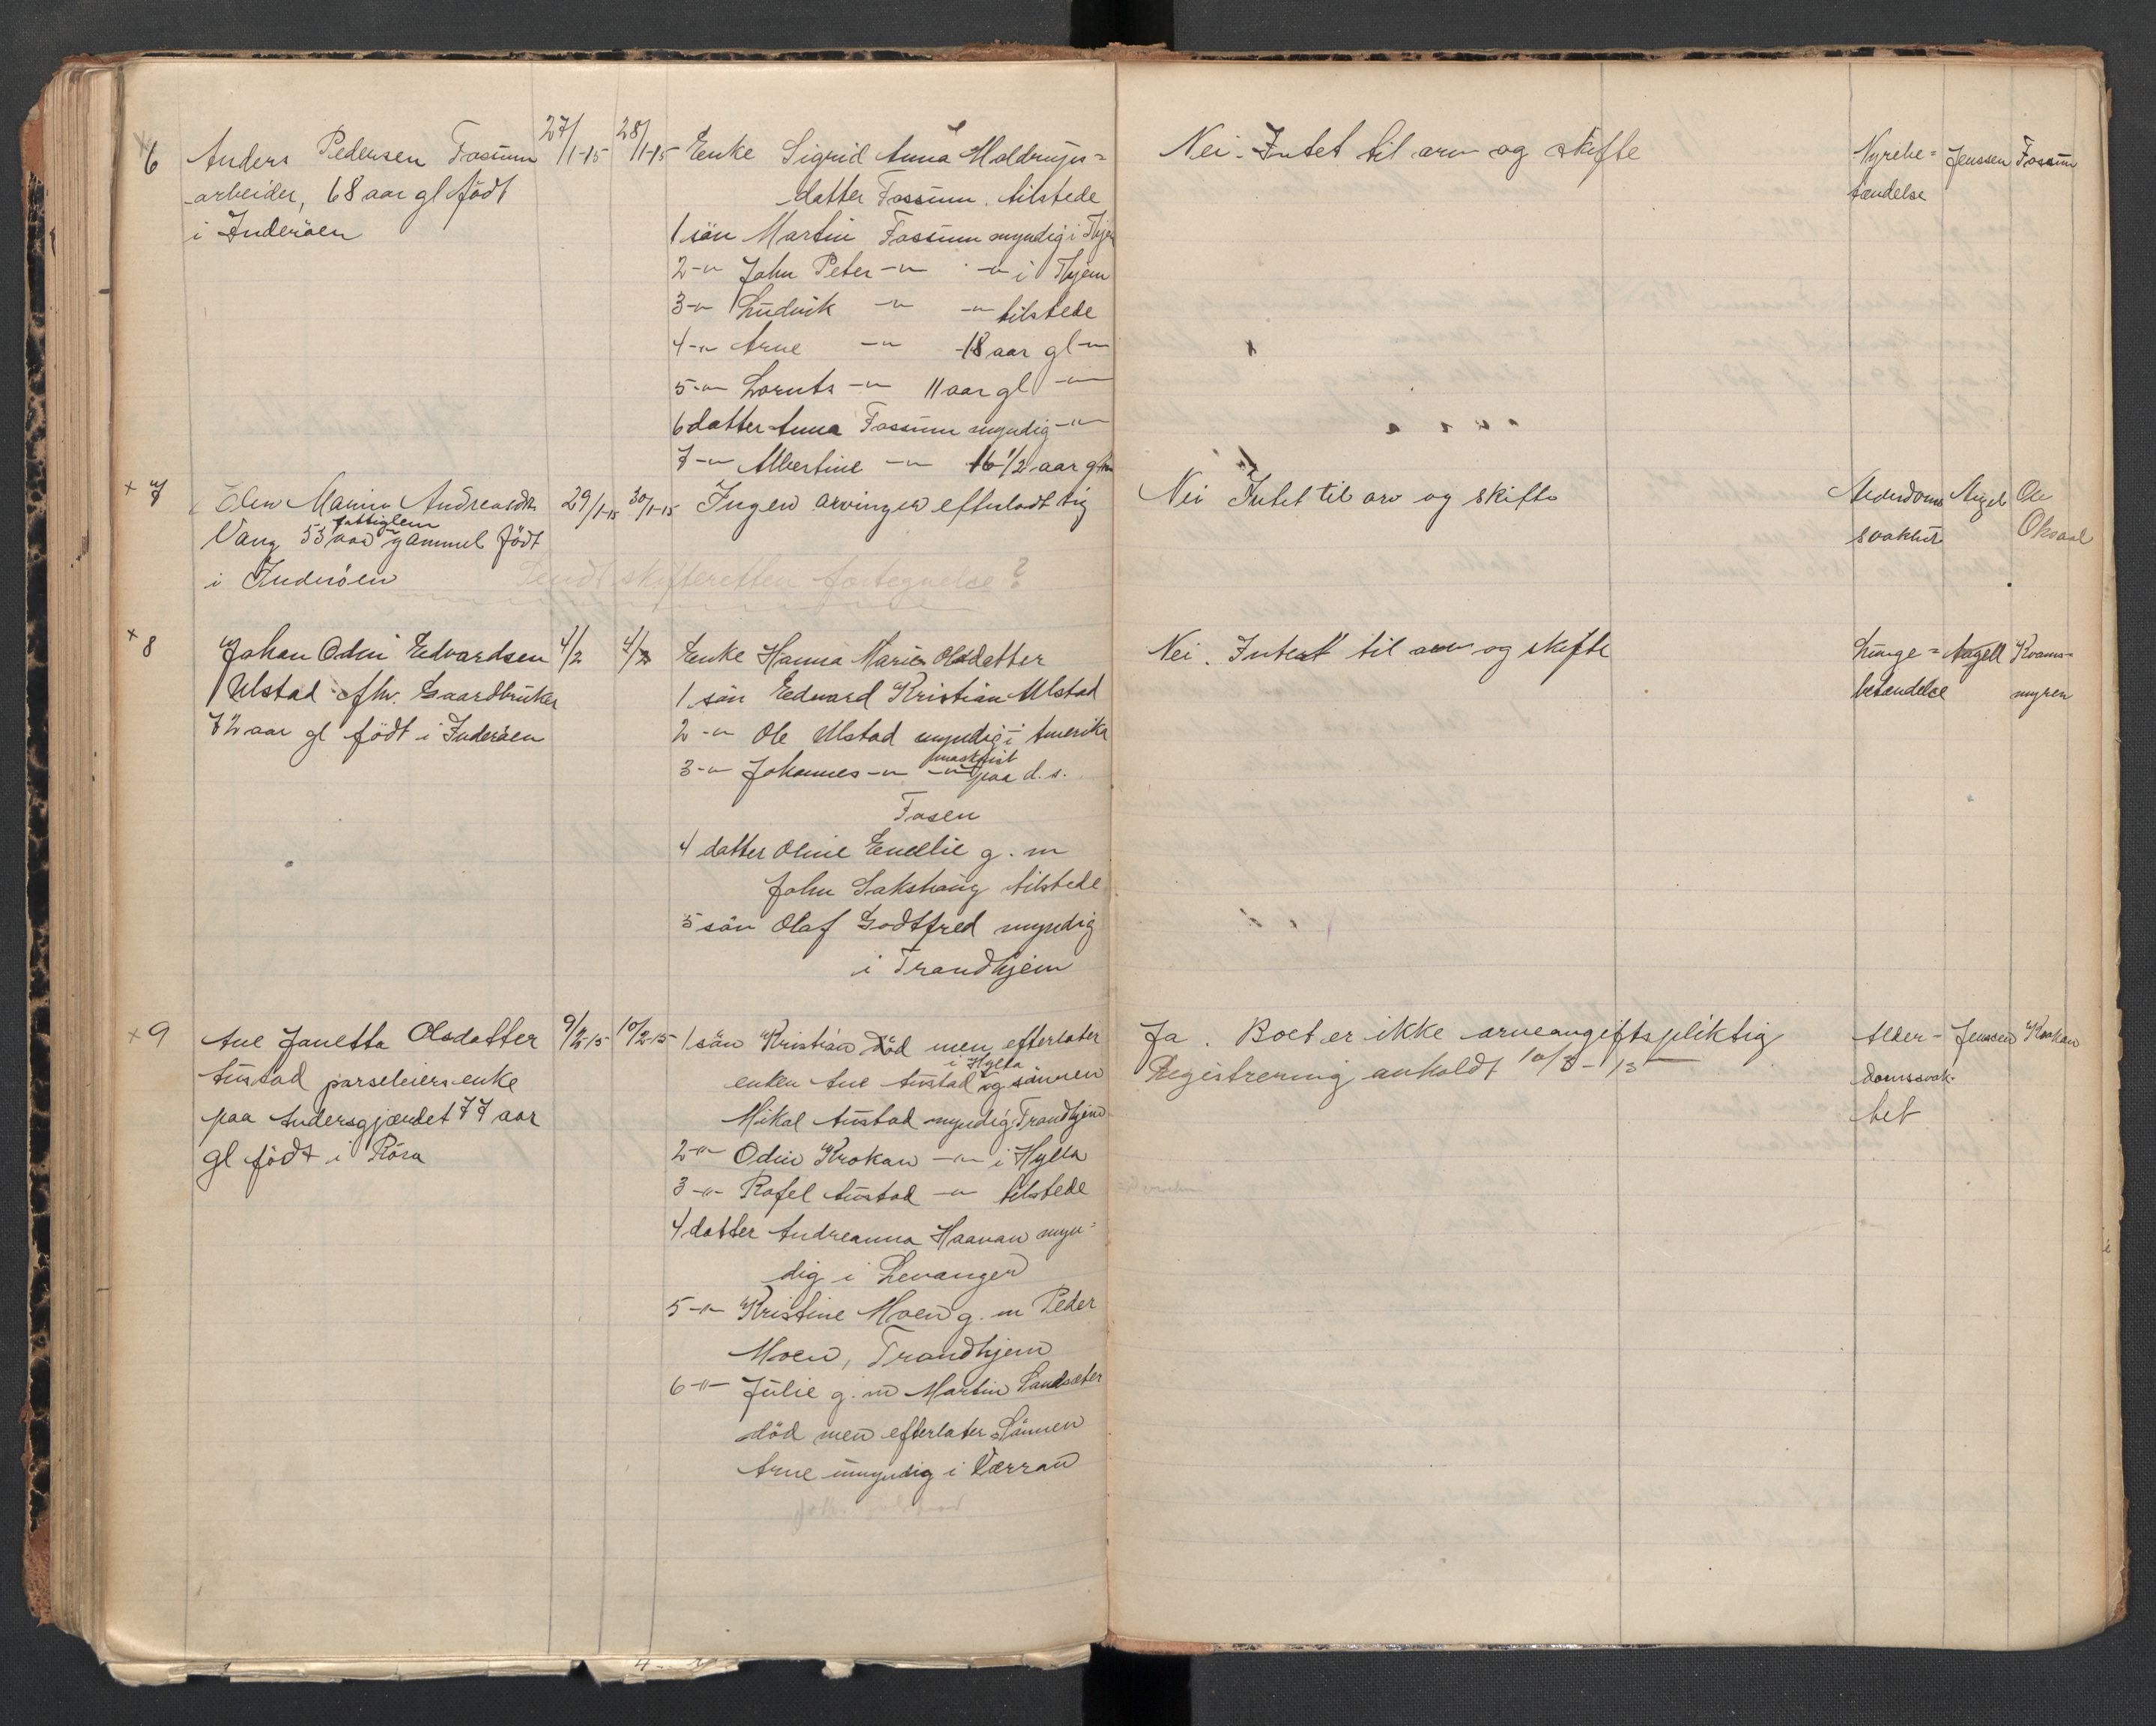 6 Anders Pedersen Fossum 27/1-15 28/1-15 Enke Sigrid Anna
arbeider, 68 aar gl født
i Inderøen
datter Fossum tilstede
1 søn Martin Fossum myndig i Thjem
2 -"- John Peter -"- -"- i Thjem
3 -"- Ludvik -"- -"- tilstede
4 -"- Arne -"- 18 aar gl -"-
5 -"- Lornts -"- 11 aar gl -"-
6 datter Anna Fossum myndig -"-
7 -"- Albertine -"- 16 1/2 aar gl -"-
Nei. Intet til arv og skifte
Nyrebe= Jenssen Fossum
tændelse
x 7 Elen Andreasdtr 29/1-15 30/1-15 Ingen arvinger efterladt sig
fattiglem
Vang 55 aar gammel født
i Inderøen
Sendt skifteretten fortegnelse?
Nei Intet til arv og skifte
Alderdoms Angel Ole
svakhet
x 8 Johan Odin Edvardsen 4/2 4/2 Enke Hanna Marie Olsdatter
Ulstad fhv. Gaardbruker
72 aar gl født i Inderøen
1 søn Edvard Kristian Ulstad
2 -"- Ole Ulstad myndig i Amerika
maskinist
3 -"- Johannes -"- -"- paa d.s.
Fosen
4 datter Oline Emelie g. m
John Sakshaug tilstede
5 søn Olaf Godtfred myndig
i Trondhjem
Nei. Intet til arv og skifte
Lunge= Angell Kvams=
betændelse myren
x 9 Ane Janetta Olsdatter 9/2-15 10/2-15
Austad parseleiers enke
paa Andersgjærdet 77 aar
gl født i Røra
1 søn Kristian død men efterlater
i Hylla
enken Ane Austad og sønnen
Mikal Austad myndig Trondhjem
2 -"- Odin Krokan -"- i Hylla
3 -"- Rafel Austad -"- tilstede
4 datter Andreanna Haavan myn=
dig i Levanger
5 -"- Kristine Moen g. m Peder
Moen, Trondhjem
6 -"- Julie g. m Martin Landsæter
død men efterlater Sønnen
Arne umyndig i Værran
Ja. Boet er ikke arveavgiftspliktig
Registrering anholdt 10/3-15
Alder- Jenssen Krokan
domssvak-
het